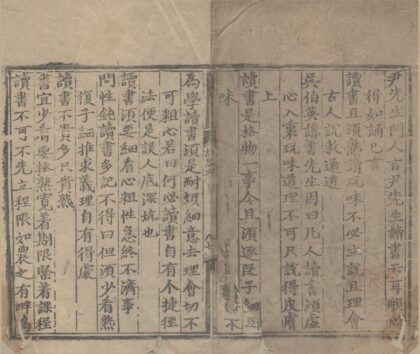 尹先生門人言尹先生讀書云耳順心
得如誦已言
讀書且須熟讀玩味不必立說且理會
古人說教通透
吳伯英講書先生因曰凡人讀書須虛
心入裏玩味道理不可只說得皮膚
上
讀書是格物一事今且須逐段子細
味
不
為學讀書須是耐煩細意去理會切不
可粗心若曰何必讀書自有个捷徑
法便是誤人底深坑也
讀書須要細看心粗性急終不濟事
問性鈍讀書多記不得曰但須少看熟
復子細推求義理自有得處
讀書不貴多只貴熟
書宜少看要極熟寬着期限緊着課程
讀書不可不先立程限如農之有畔